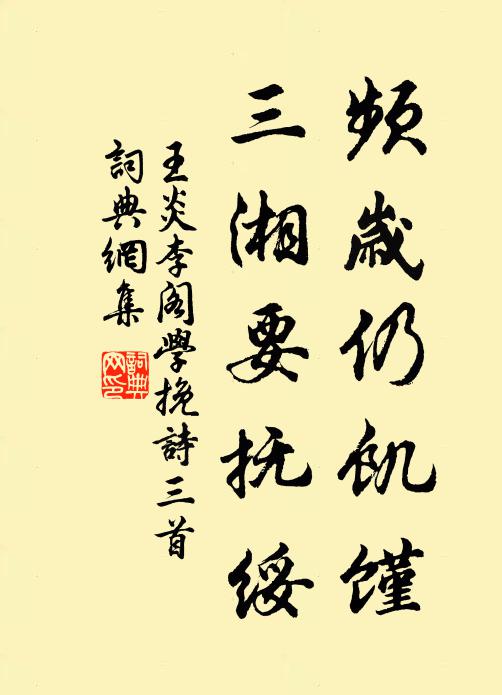 频岁仍饥馑
三湘要抚绥
王炎李阁學挽詩三首
詞典網集
詞典
网印